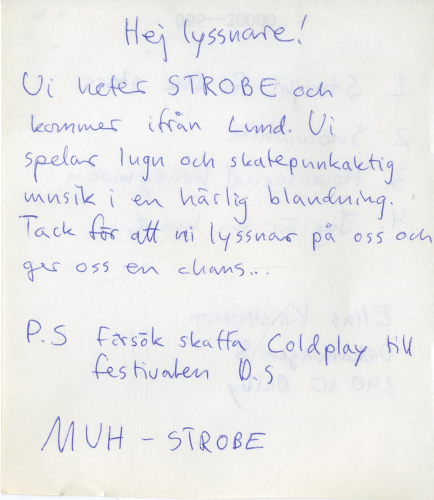 Hej lyssnare!
Vi heter STROBE och
kommer ifrån Lund. Vi
spelar lugn och skatepunkaktig
musik i en härlig blandning.
Tack för att ni lyssnar på oss och
ger oss en chans...
P.S Försök skaffa Coldplay till
festivalen D.S
MVH - STROBE